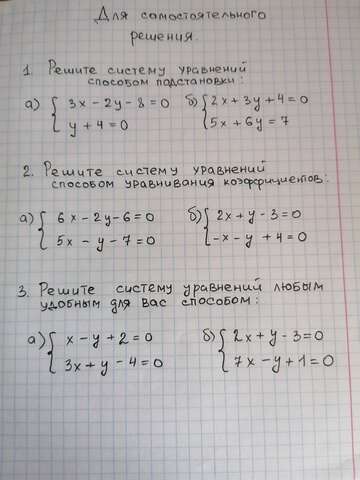 Для самостоятельного
решения.
1. Решите систему уравнений
способом подстановки:
а) { 3x - 2y - 8 = 0 б) { 2x + 3y + 4 = 0
y + 4 = 0 5x + 6y = 7
2. Решите систему уравнений
способом уравнивания коэффициентов:
а) { 6x - 2y - 6 = 0 б) { 2x + y - 3 = 0
5x - y - 7 = 0 -x - y + 4 = 0
3. Решите систему уравнений любым
удобным для вас способом:
а) { x - y + 2 = 0 б) { 2x + y - 3 = 0
3x + y - 4 = 0 7x - y + 1 = 0